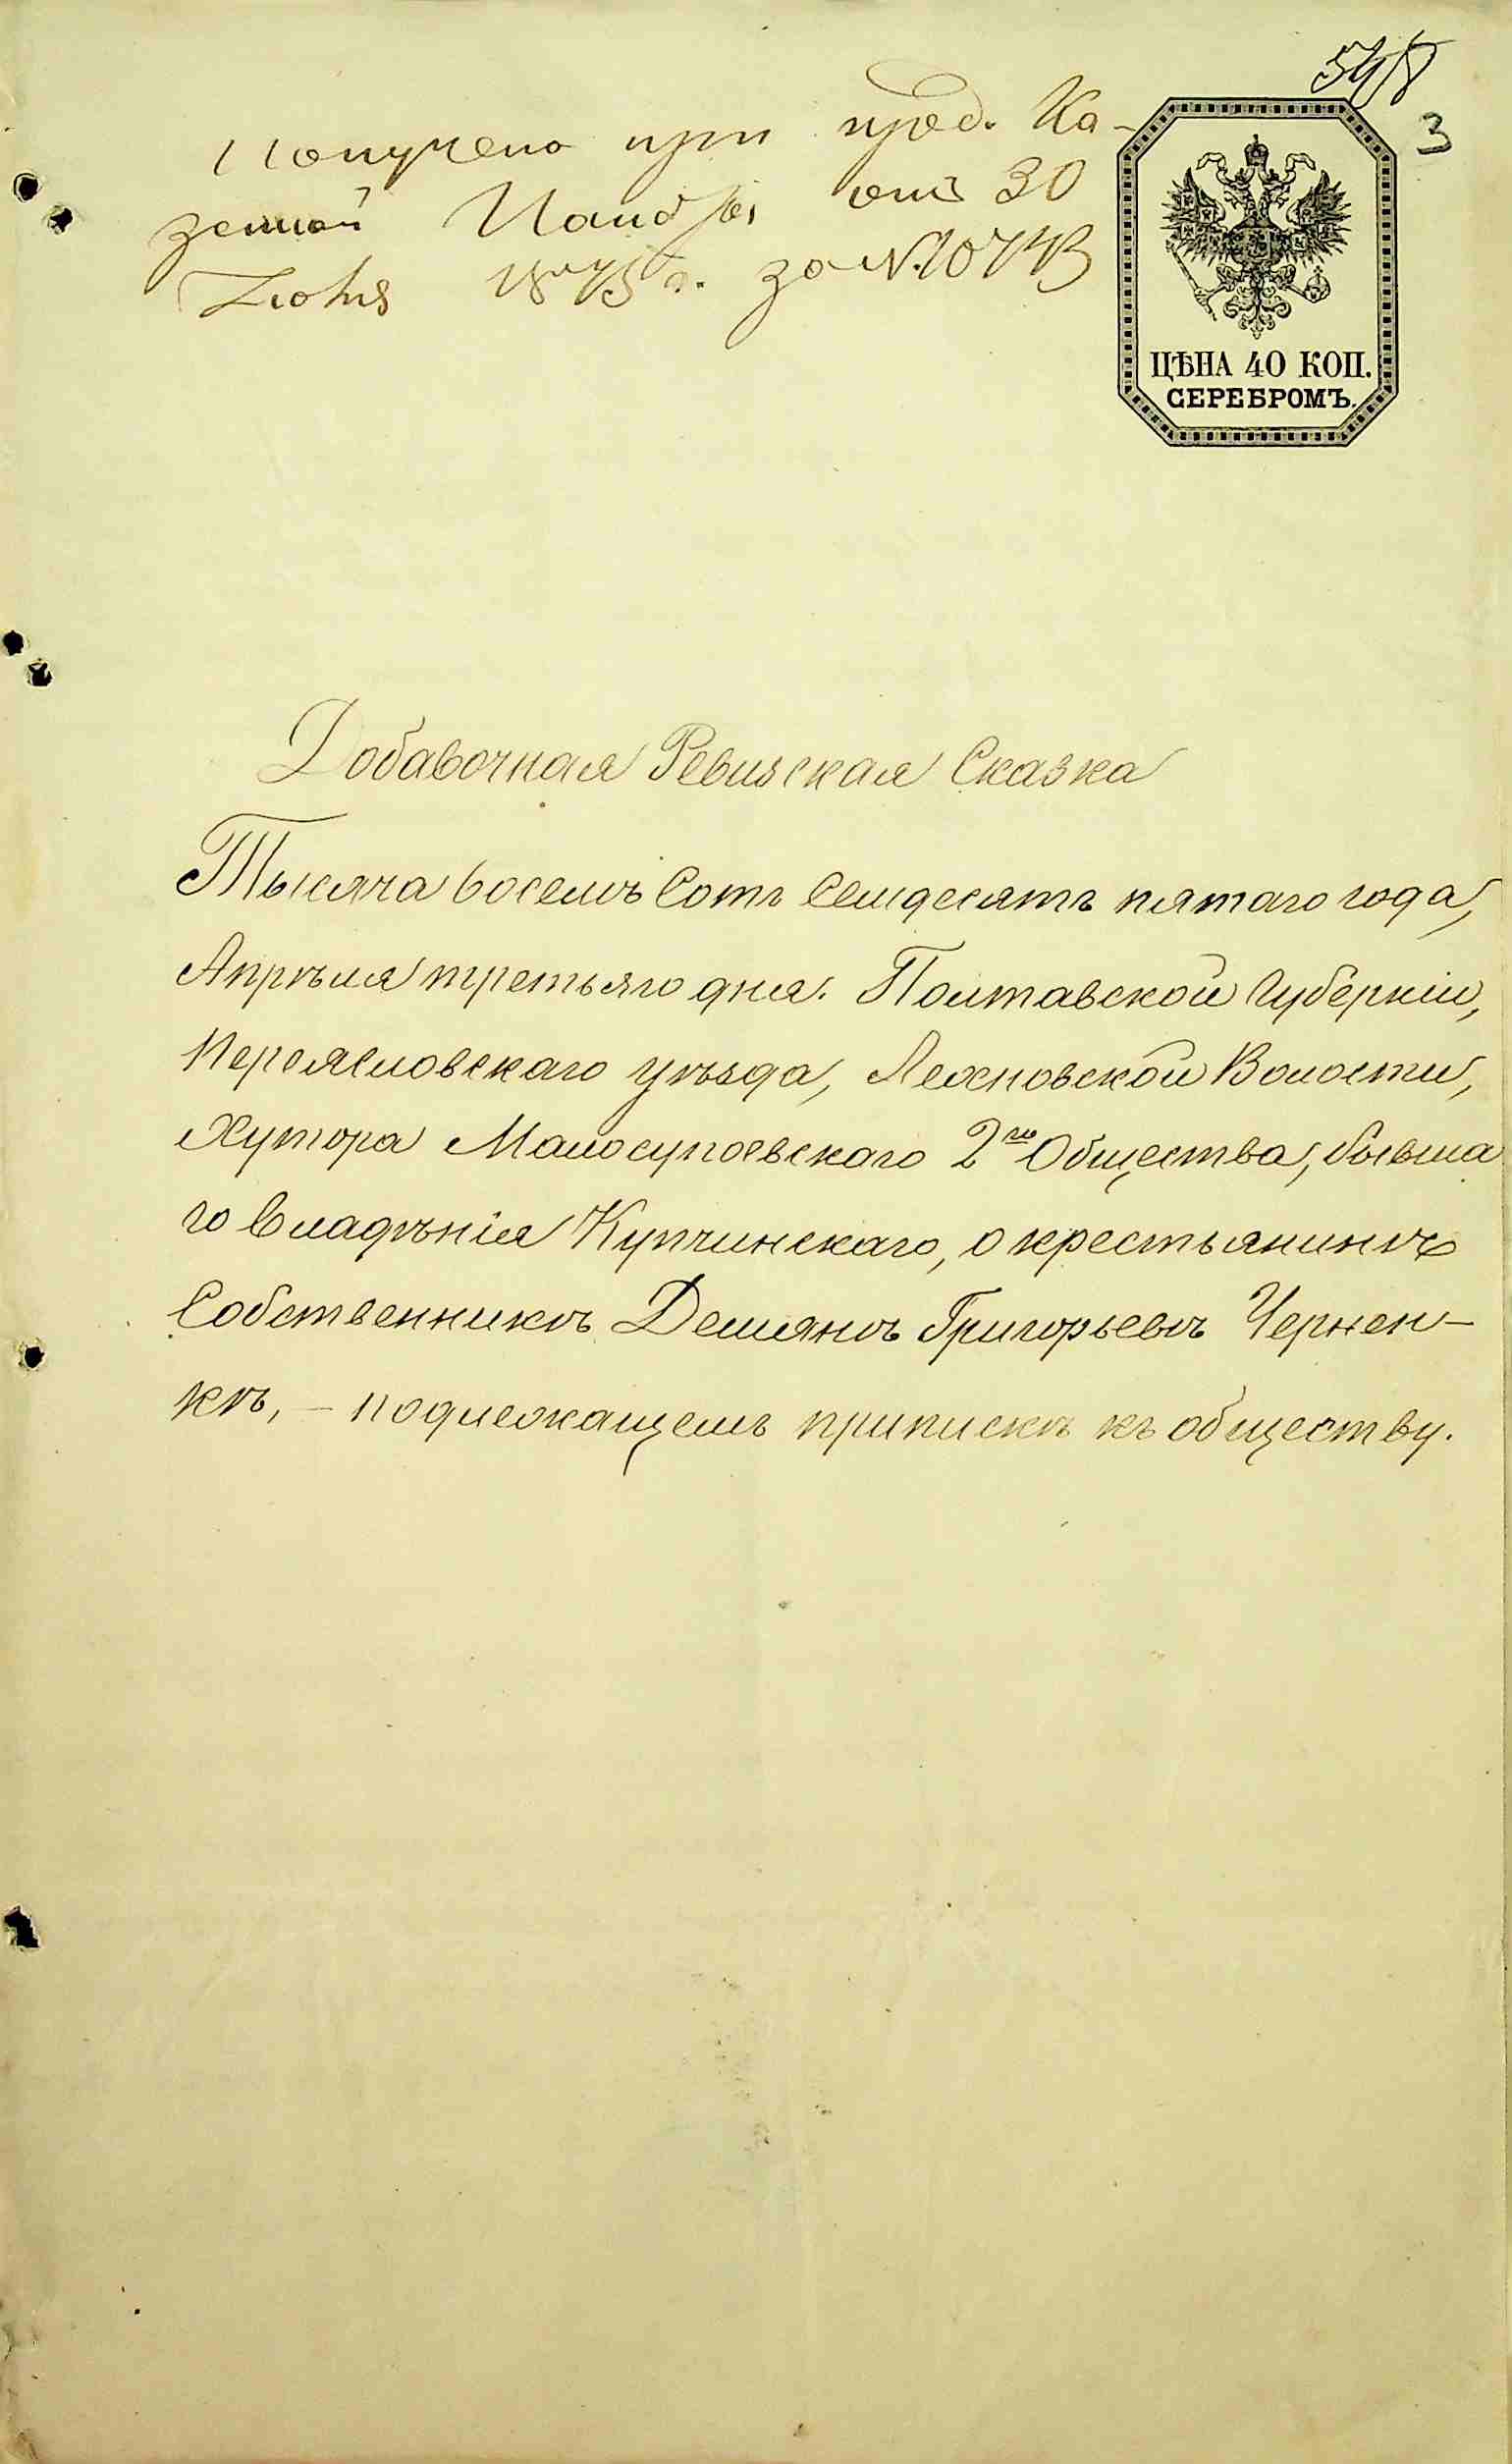 548
3
Получено при пред. Ка-
зенной Палаты отъ 30
Іюня 1875 г. за №10743
ЦѢНА 40 КОП.
СЕРЕБРОМЪ.
Добавочная Ревизская Сказка
Тысяча восемъ Сотъ Семдесятъ пятаго года,
Апрѣля третьяго дня. Полтавской Губерніи,
Переясловскаго уѣзда, Волости,
Хутора Малосупоевскаго 2го Общества, бывша
го владѣнія Купчинскаго, о крестьянинѣ
Собственникѣ Демянѣ Григорьевѣ Чернен-
кѣ, – подлежащемъ припискѣ къ обществу.